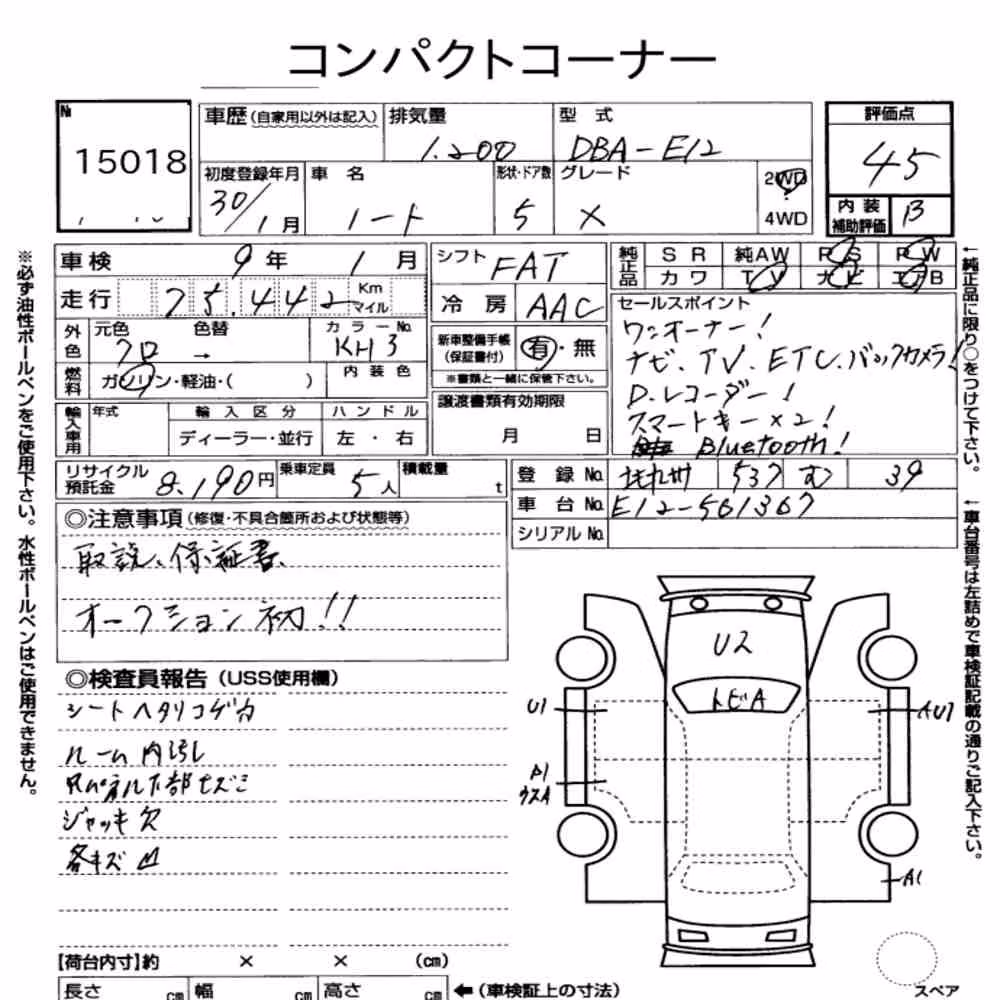 コンパクトコーナー
№ 15018
車歴 (自家用以外は記入) 排気量 1.200 型式 DBA-E12
評価点 45
初度登録年月 30/1月 車名 ノート 形状・ドア数 5 グレード X 2WD 4WD
内装補助評価 B
車検 9年 1月 シフト FAT
純正品 SR 純AW PS PW カワ TV ナビ エアB
走行 75.442 Km マイル 冷房 AAC
外色 元色 クロ 色替 → カラーNo. KH3
新車整備手帳 (保証書付) 有・無
※書類と一緒に保管下さい。
燃料 ガソリン・軽油・( ) 内装色
セールスポイント
ワンオーナー!
ナビ、TV、ETC、バックカメラ!
D.レコーダー!
スマートキー×2!
Bluetooth!
譲渡書類有効期限 月 日
輸入車用 年式 輸入区分 ハンドル
ディーラー・並行 左・右
リサイクル預託金 8.190円 乗車定員 5人 積載量 t
登録No. 537 む 39
車台No. E12-561367
シリアルNo.
◎注意事項(修復・不具合箇所および状態等)
取説、保証書、
オークション初!!
◎検査員報告(USS使用欄)
シートヘタリコゲ穴
ルーム内汚し
下部キズミ
ジャッキ欠
各キズ凹
U2
トビA
U1
AU1
A1
ウスA
A1
【荷台内寸】約 × × (cm)
長さ cm 幅 cm 高さ cm ←(車検証上の寸法)
スペア
※必ず油性ボールペンをご使用下さい。水性ボールペンはご使用できません。
↑純正品に限り○をつけて下さい。
↑車台番号は左詰めで車検証記載の通りご記入下さい。